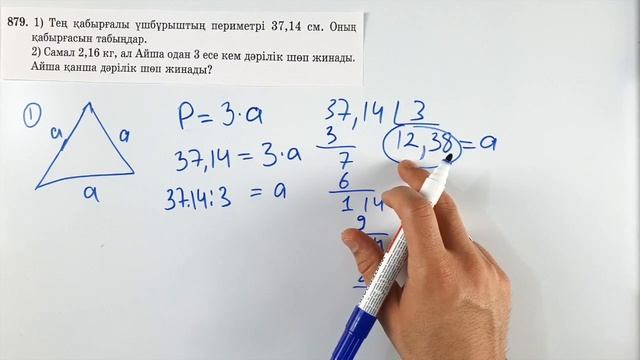 879. 1) Тең қабырғалы үшбұрыштың периметрі 37,14 см. Оның
қабырғасын табыңдар.
2) Самал 2,16 кг, ал Айша одан 3 есе кем дәрілік шөп жинады.
Айша қанша дәрілік шөп жинады?
1
a a
a
P = 3·a
37,14 = 3·a
37.14:3 = a
37,14 3
3 12,38 = a
7
6
1 14
9